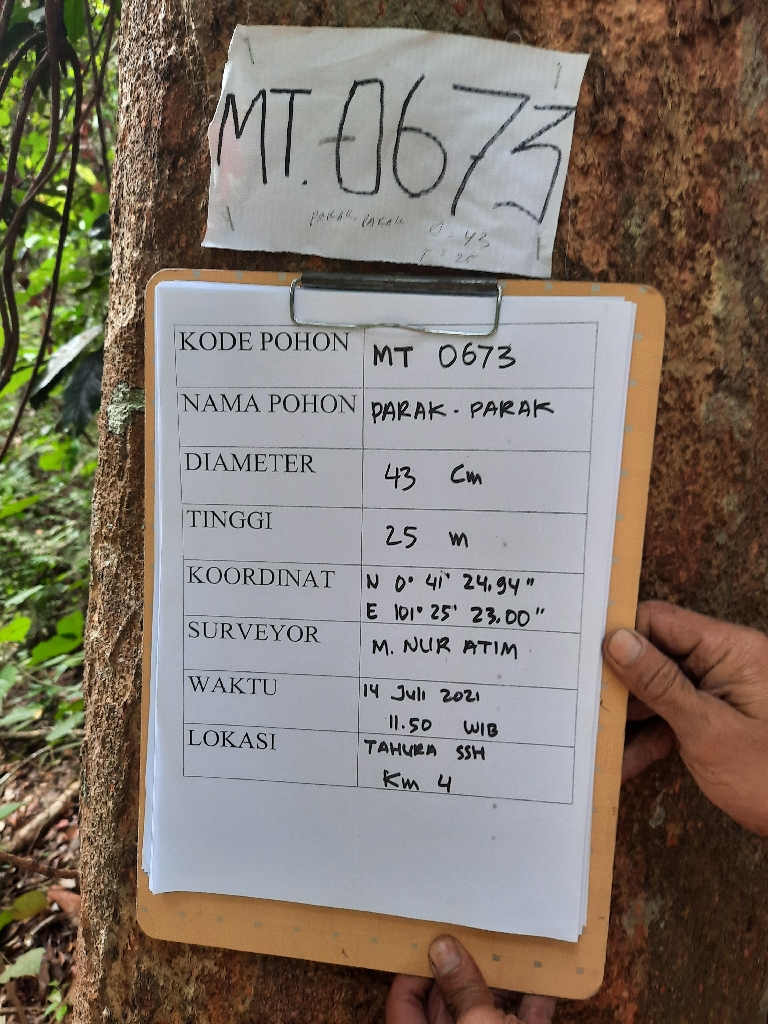 MT. 0673
PARAK-PARAK
D = 43
T = 25
KODE POHON MT 0673
NAMA POHON PARAK - PARAK
DIAMETER 43 Cm
TINGGI 25 m
KOORDINAT N 0° 41' 24,94"
E 101° 25' 23,00"
SURVEYOR M. NUR ATIM
WAKTU 14 Juli 2021
11.50 WIB
LOKASI TAHURA SSH
Km 4